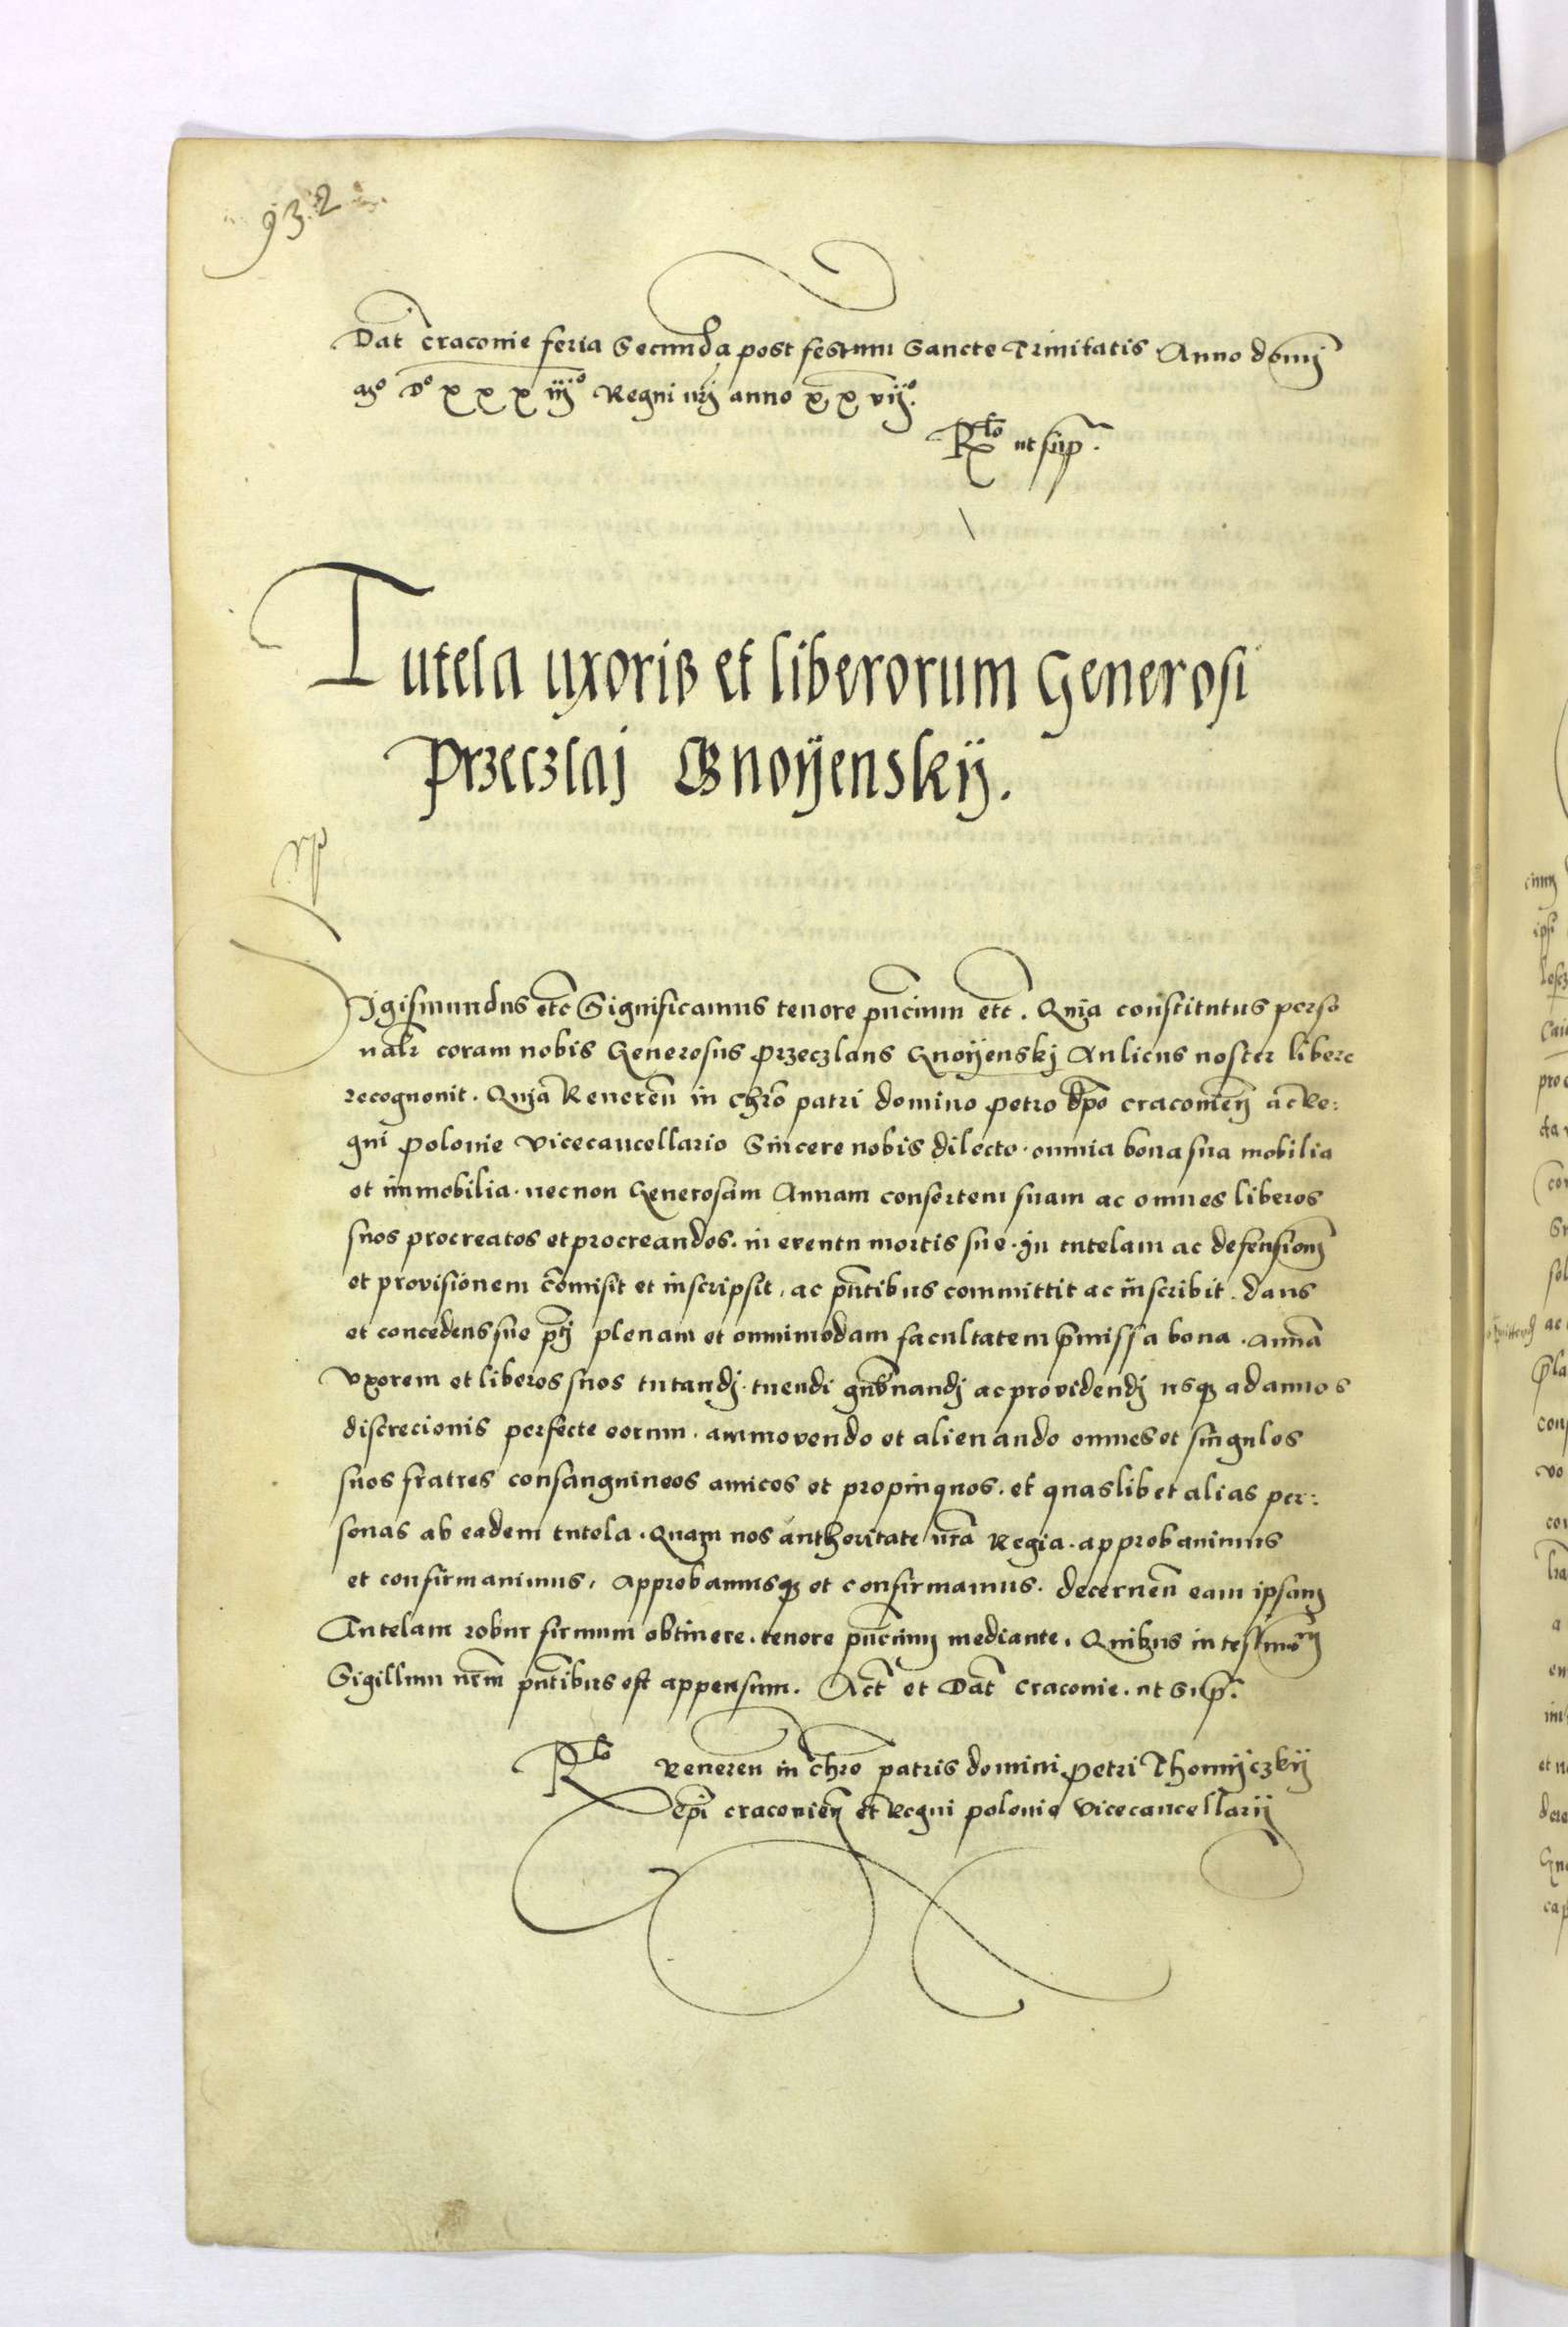 932
Dat Craconie feria Secunda post festum Sancte Trinitatis Anno domi
Mo Do xxx iiio Regni nri anno xxviio.
Rlo ut sup.
Tutela uxoris et liberorum Generosi
Przeczlaj Gnoyensky.
Sigismundus etc Significamus tenore pncium etc. Quia constitutus perso
nalr coram nobis Generosus Przeczlaus Gnoyenskj Aulicus noster libere
recognovit. Quia Reveren in chro patri domino Petro Epo cracovien ac Re:
gni Polonie Vicecancellario Sincere nobis dilecto. omnia bona sua mobilia
et immobilia. necnon Generosam Annam consortem suam ac omnes liberos
suos procreatos et procreandos. in eventu mortis sue. in tutelam ac defensionem
et provisionem comisit et inscripsit, ac pntibus committit ac inscribit. dans
et concedens sue ptj plenam et omnimodam facultatem pmissa bona. annam
Uxorem et liberos suos tutandj. tuendi gubnandj ac providendj usq ad annos
discrecionis perfecte eorum. ammovendo et alienando omnes et singulos
suos fratres consanguineos amicos et propinquos. et quaslibet alias per:
sonas ab eadem tutela. Quam nos authoritate nra Regia. approbavimus
et confirmavimus, Approbamusq et confirmamus. decernen eam ipsam
Tutelam robur firmum obtinere. tenore pncium mediante. Quibus in testimom
Sigillum nrm pntibus est appensum. Act et Dat Cracovie. ut Sup.
Rlo Reveren in chro patris domini Petri Thomyczky
Epi cracovien et Regni polonie Vicecancellarij